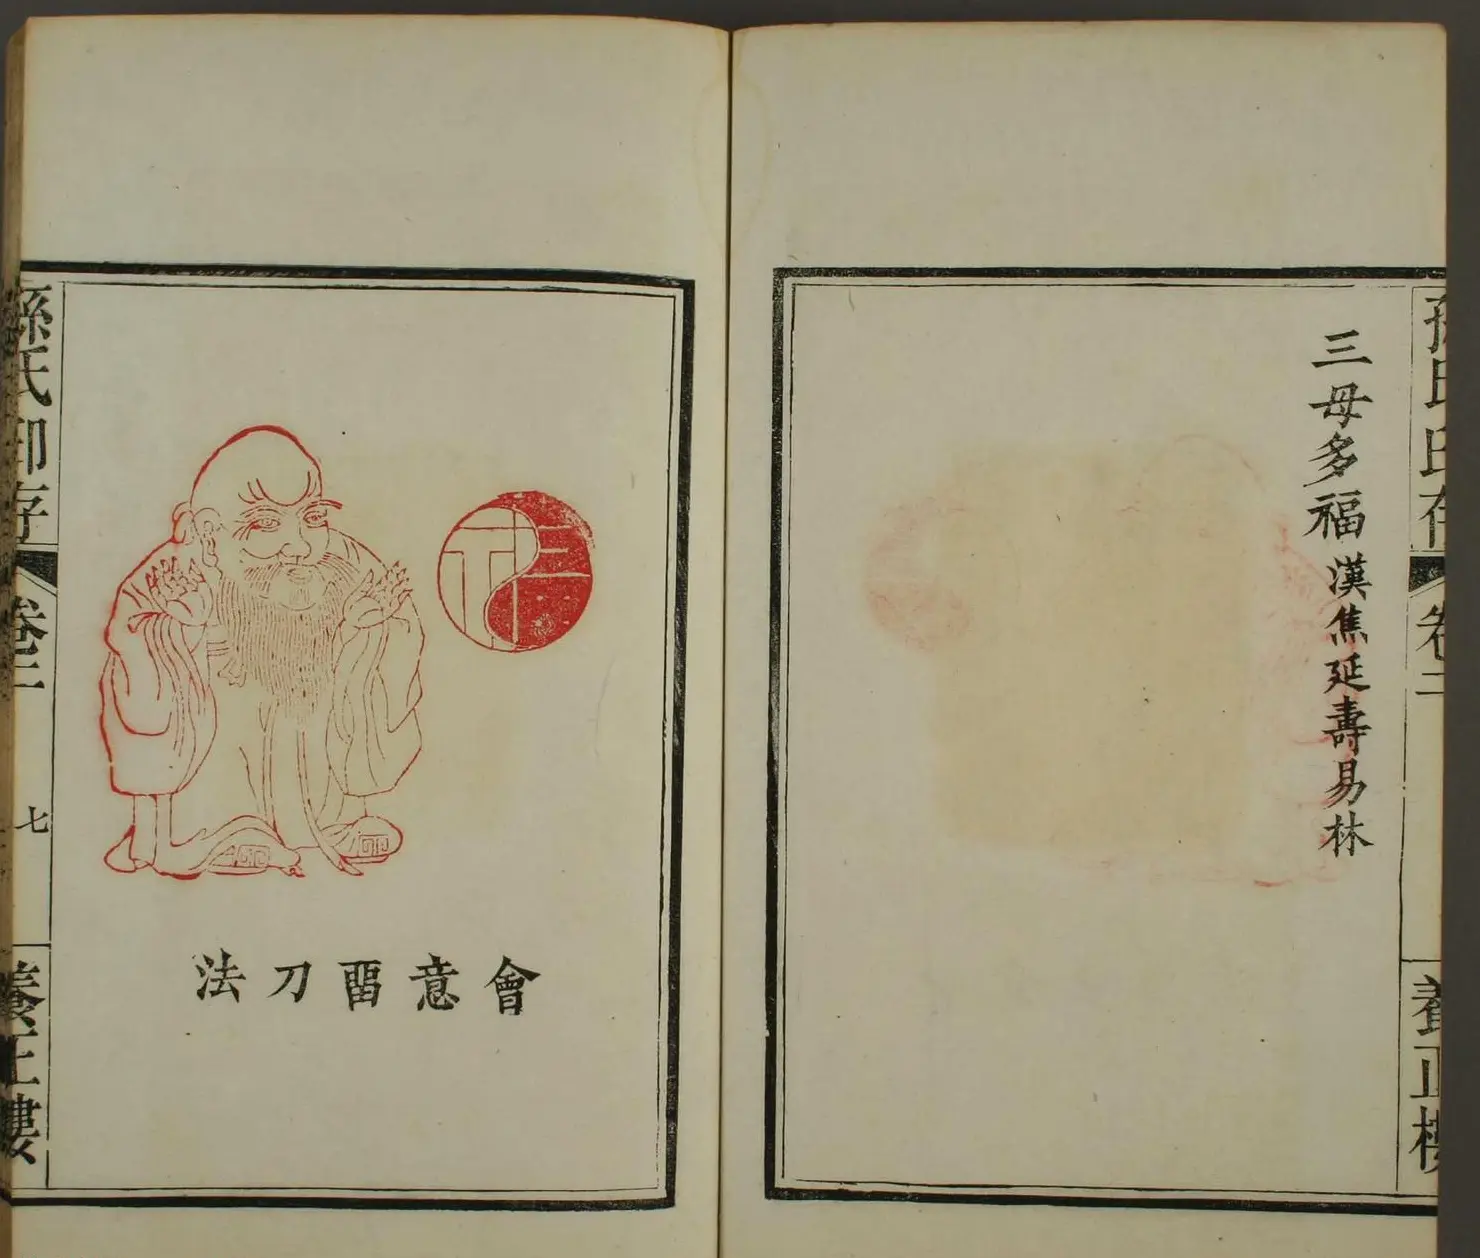 孫氏印存 卷二 養正樓
三母多福 漢焦延壽易林
會意畱刀法
孫氏印存 卷二 七 養正樓